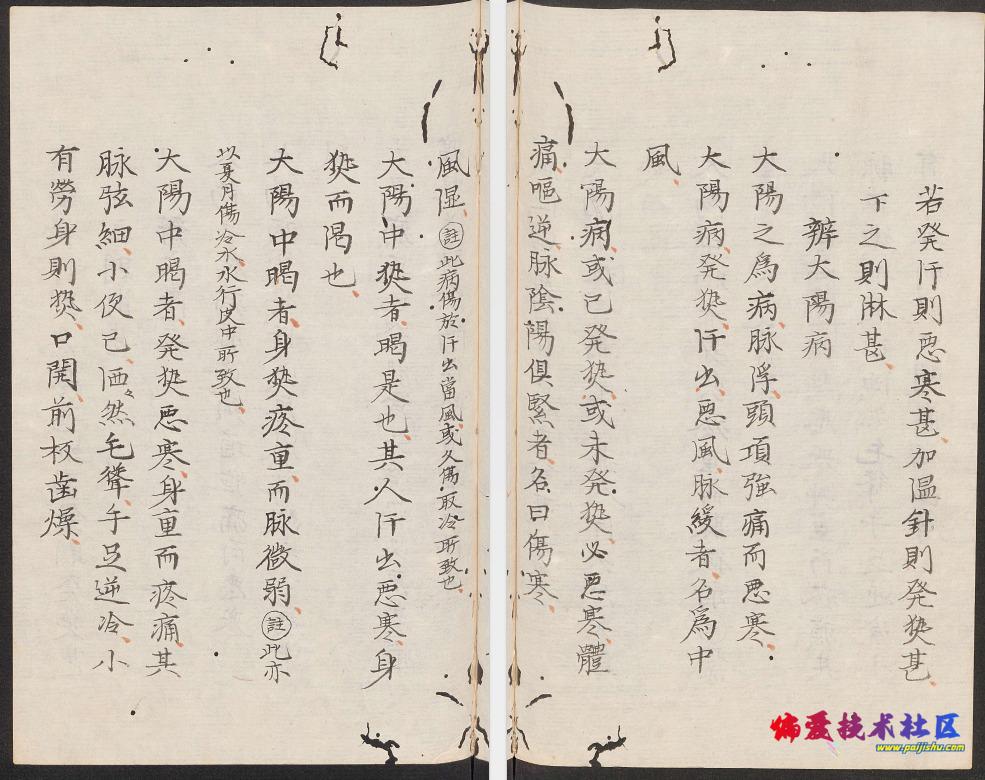 若発汗則悪寒甚加温針則発熱甚
下之則淋甚
辨大陽病
大陽之為病脉浮頭項強痛而悪寒
大陽病発熱汗出悪風脉緩者名為中
風
大陽病或已発熱或未発熱必悪寒體
痛嘔逆脉陰陽俱緊者名曰傷寒
風湿註此病傷於汗出當風或久傷取冷所致也
大陽中熱者暍是也其人汗出悪寒身
熱而渇也
大陽中暍者身熱疼重而脉微弱註此亦
以夏月傷冷水水行皮中所致也
大陽中暍者発熱悪寒身重而疼痛其
脉弦細小便已洒々然毛聳手足逆冷小
有勞身則熱口開前板歯燥
偏爱技术社区
www.paijishu.com